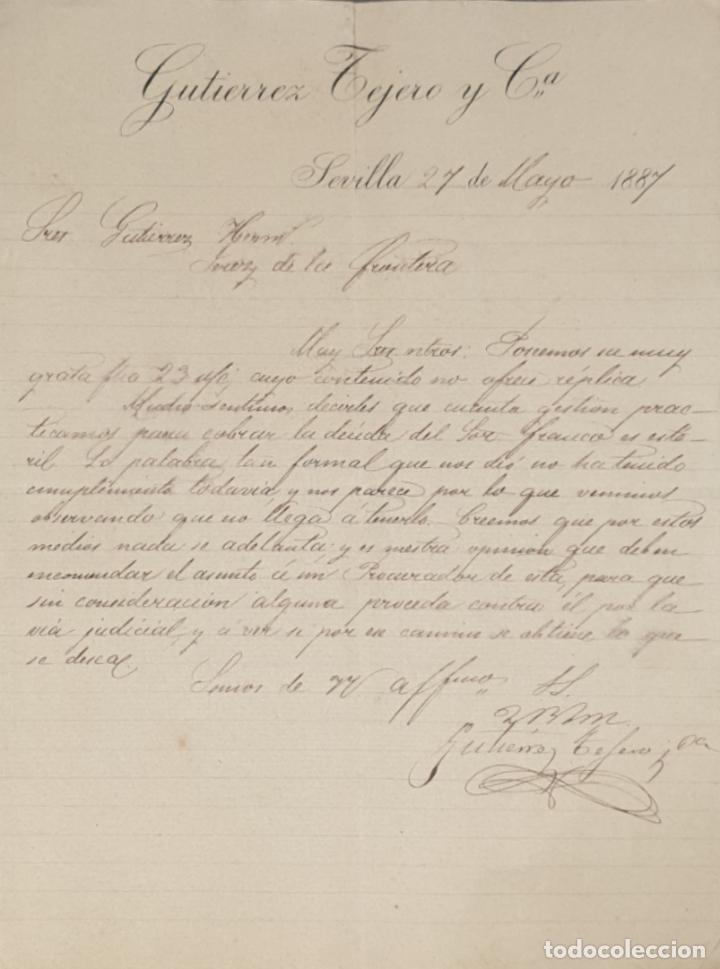 Gutierrez Tejero y C.ª
Sevilla 27 de Mayo 1887
Sres Gutiérrez Herm.
Jerez de la Frontera
Muy Sres ntros: Ponemos su muy
grata fha 23 cuyo contenido no ofrece réplica
Mucho sentimos decirles que cuanta gestion prac-
ticamos para cobrar la deuda del Sor. Franco es esté-
ril. La palabra tan formal que nos dió no ha tenido
cumplimiento todavia, y nos parece por lo que venimos
observando que no llega á tenerlo. Creemos que por estos
medios nada se adelanta; y es nuestra opinion que deben
encomendar el asunto á un Procurador de esta, para que
sin consideracion alguna proceda contra él por la
via judicial, y á ver si por ese camino se obtiene lo que
se desea.
Somos de VV affmos SS.
Q B S M.
Gutiérrez Tejero y Ca
todocoleccion
todocoleccion.net